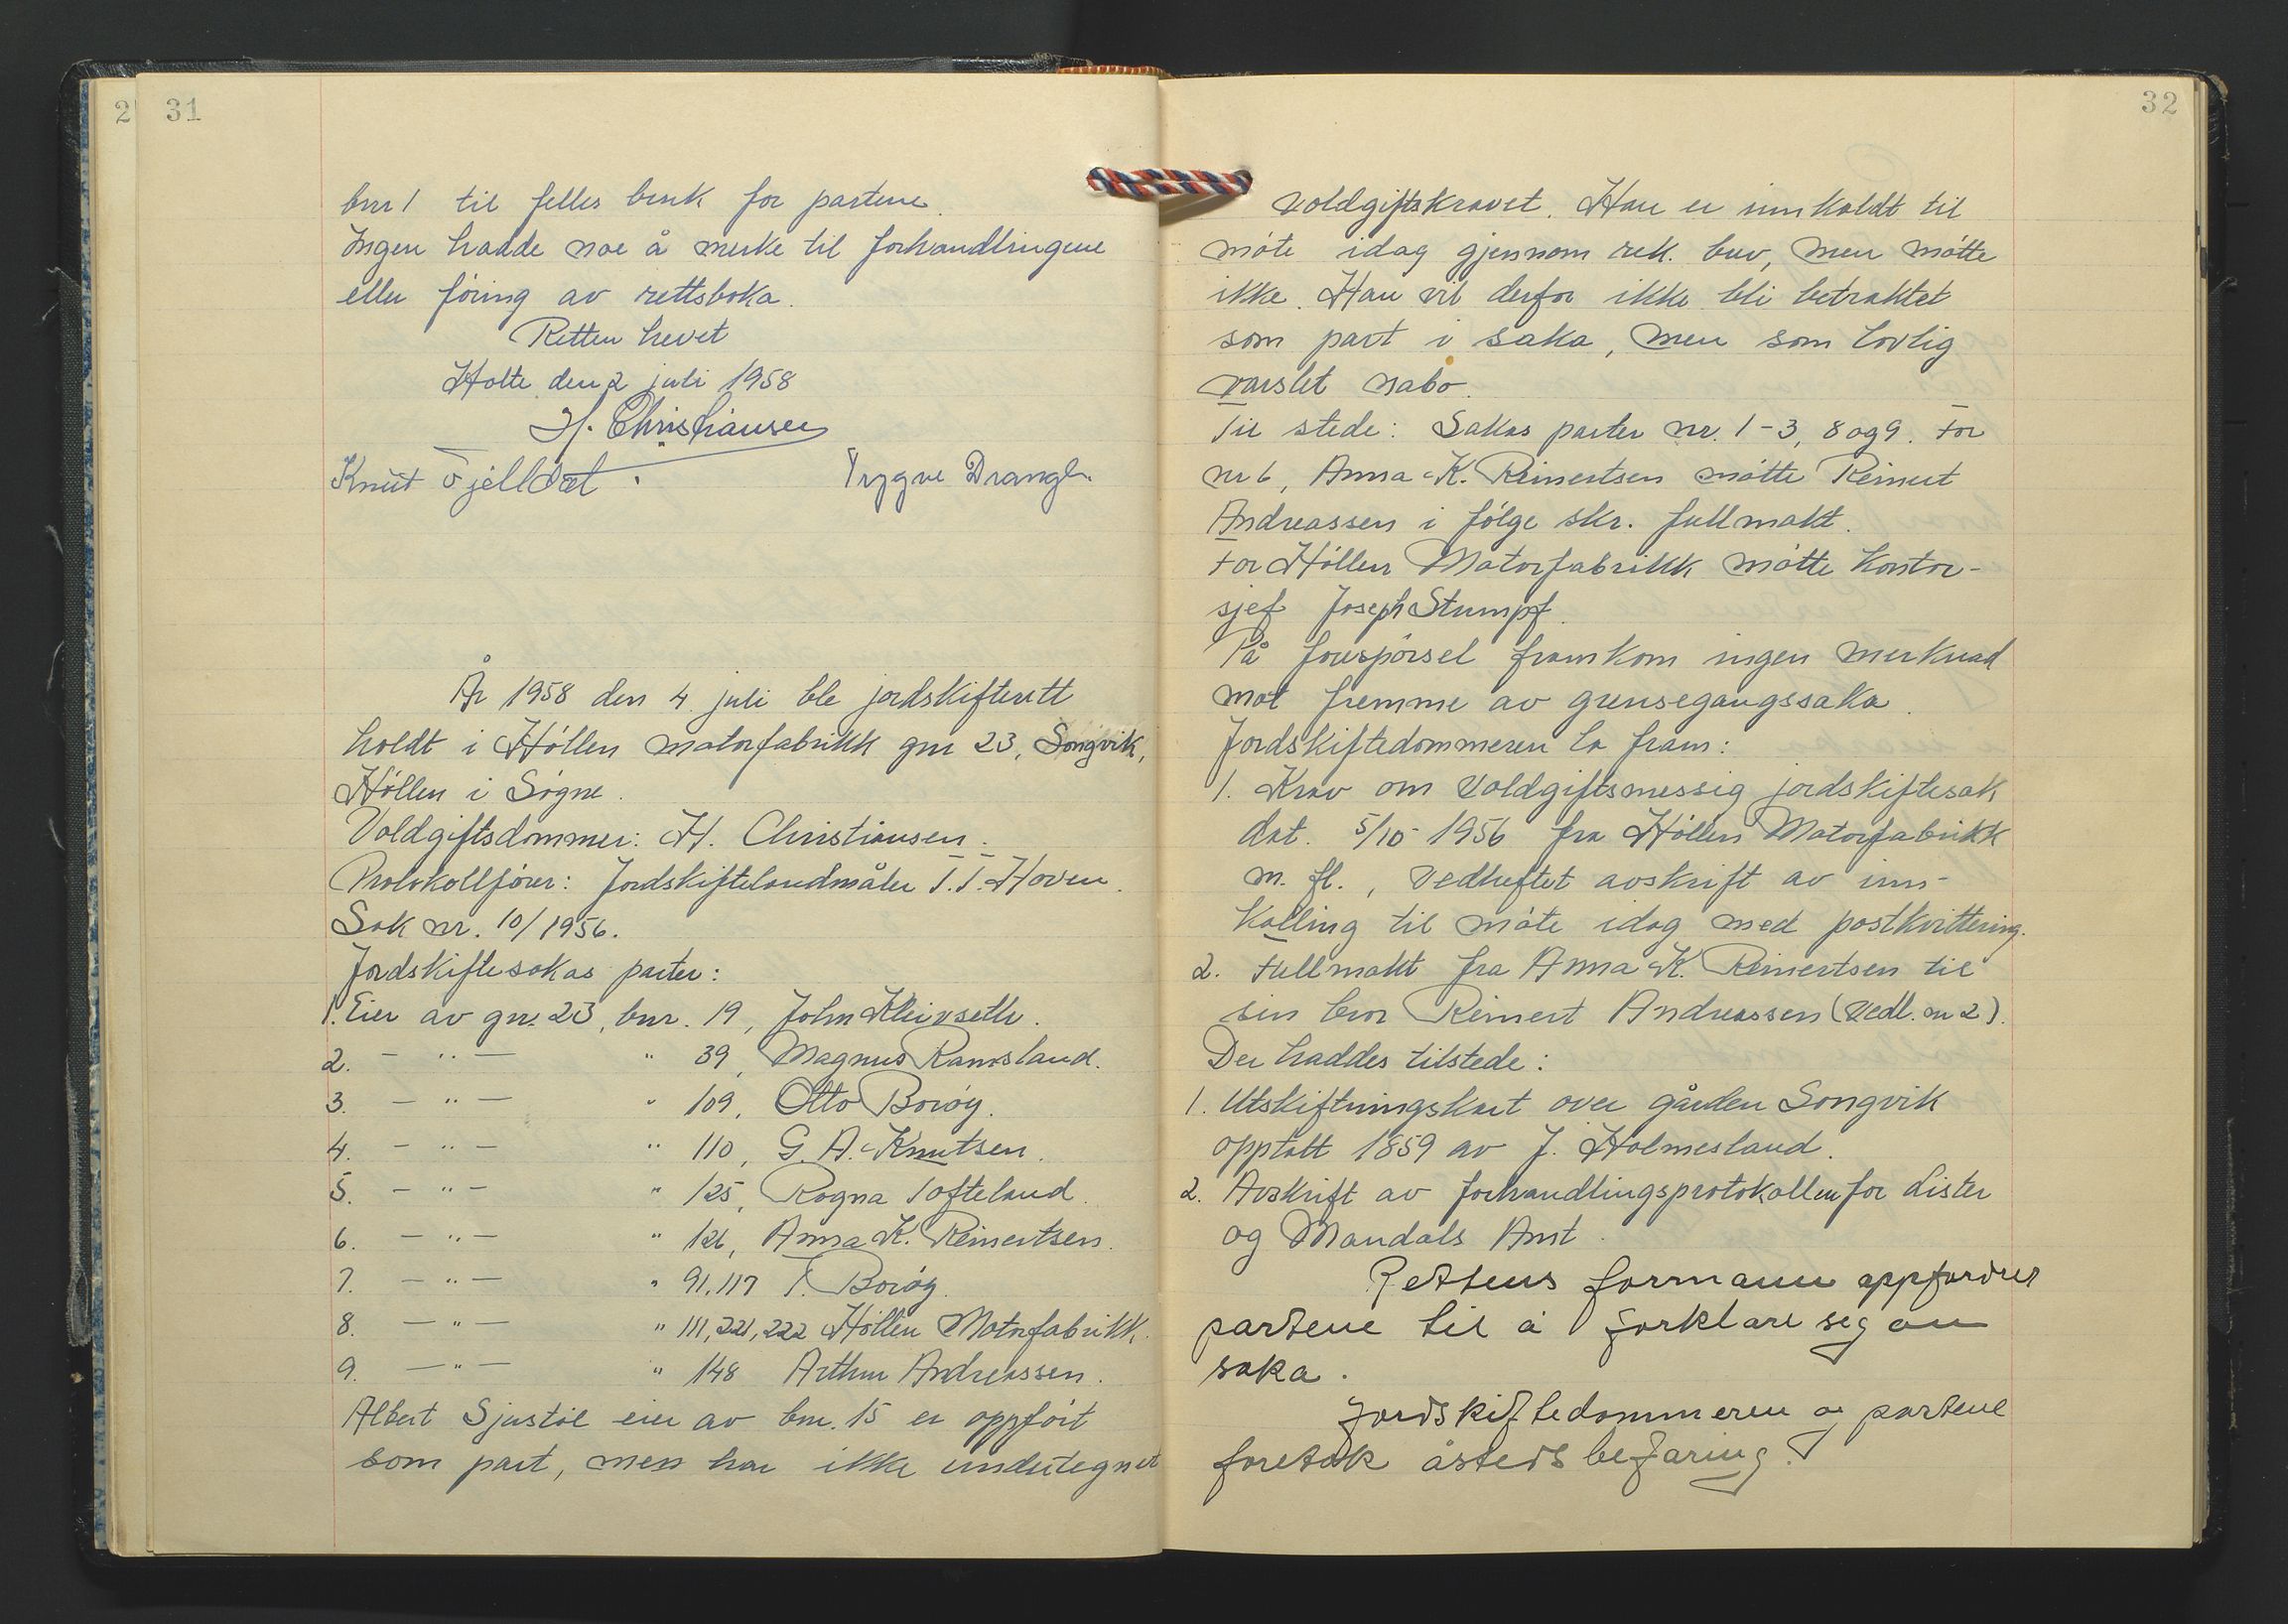 2
31
bnr 1 til felles bruk for partene.
Ingen hadde noe å merke til forhandlingene
eller føring av rettsboka.
Retten hevet
Holte den 2 juli 1958
H. Christiansen
Knut Fjelldal. Trygve Drangl.
År 1958 den 4. juli ble jordskifterett
holdt i Høllen motorfabrikk gnr 23, Songvik,
Høllen i Søgne.
Voldgiftsdommer: H. Christiansen.
Protokollfører: Jordskiftelandmåler T.T. Hoven.
Sak nr. 10/1956.
Jordskiftesakas parter:
1. Eier av gnr. 23, bnr. 19, John Kleivseth.
2. — " — " 39, Magnus Ramsland.
3. — " — " 109, Otto Borøy.
4. — " — " 110, G. A. Knutsen.
5. — " — " 125, Ragna Tofteland.
6. — " — " 126, Anna K. Reinertsen.
7. — " — " 91, 117 T. Borøy.
8. — " — " 111, 221, 222 Høllen Motorfabrikk.
9. — " — " 148 Arthur Andreassen.
Albert Sjustøl eier av bnr. 15 er oppført
som part, men har ikke undertegnet
32
voldgiftskravet. Han er innkaldt til
møte idag gjennom rek. brev, men møtte
ikke. Han vil derfor ikke bli betraktet
som part i saka, men som lovlig
varslet nabo.
Til stede: Sakas parter nr. 1-3, 8 og 9. For
nr 6, Anna K. Reinertsen møtte Reinert
Andreassen i følge skr. fullmakt.
For Høllen Motorfabrikk møtte kontor-
sjef Joseph Stumpf.
På forespørsel framkom ingen merknad
mot fremme av grensegangssaka.
Jordskiftedommeren la fram:
1. Krav om voldgiftsmessig jordskiftesak
dat. 5/10-1956 fra Høllen Motorfabrikk
m. fl., vedheftet avskrift av inn-
kalling til møte idag med postkvittering.
2. Fullmakt fra Anna K. Reinertsen til
sin bror Reinert Andreassen (Vedl. nr 2).
Der haddes tilstede:
1. Utskiftningskart over gården Songvik
opptatt 1859 av J. Holmesland.
2. Avskrift av forhandlingsprotokollen for Lister
og Mandals Amt.
Rettens formann oppfordrer
partene til å forklare seg om
saka.
Jordskiftedommeren og partene
foretok åstedsbefaring.